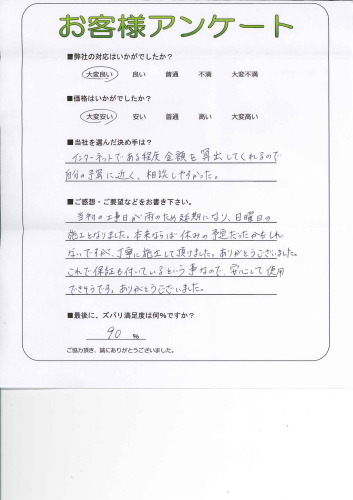 お客様アンケート
■弊社の対応はいかがでしたか？
大変良い 良い 普通 不満 大変不満
■価格はいかがでしたか？
大変安い 安い 普通 高い 大変高い
■当社を選んだ決め手は？
インターネットである程度金額を算出してくれるので
自分の予算に近く、相談しやすかった。
■ご感想・ご要望などをお書き下さい。
当初の工事日が雨のため延期になり、日曜日の
施工となりました。本来ならば休みの予定だったかもしれ
ないですが、丁寧に施工して頂けました。ありがとうございました。
これで保証も付いているという事なので、安心して使用
できそうです。ありがとうございました。
■最後に、ズバリ満足度は何%ですか？
90 %
ご協力頂き、誠にありがとうございました。